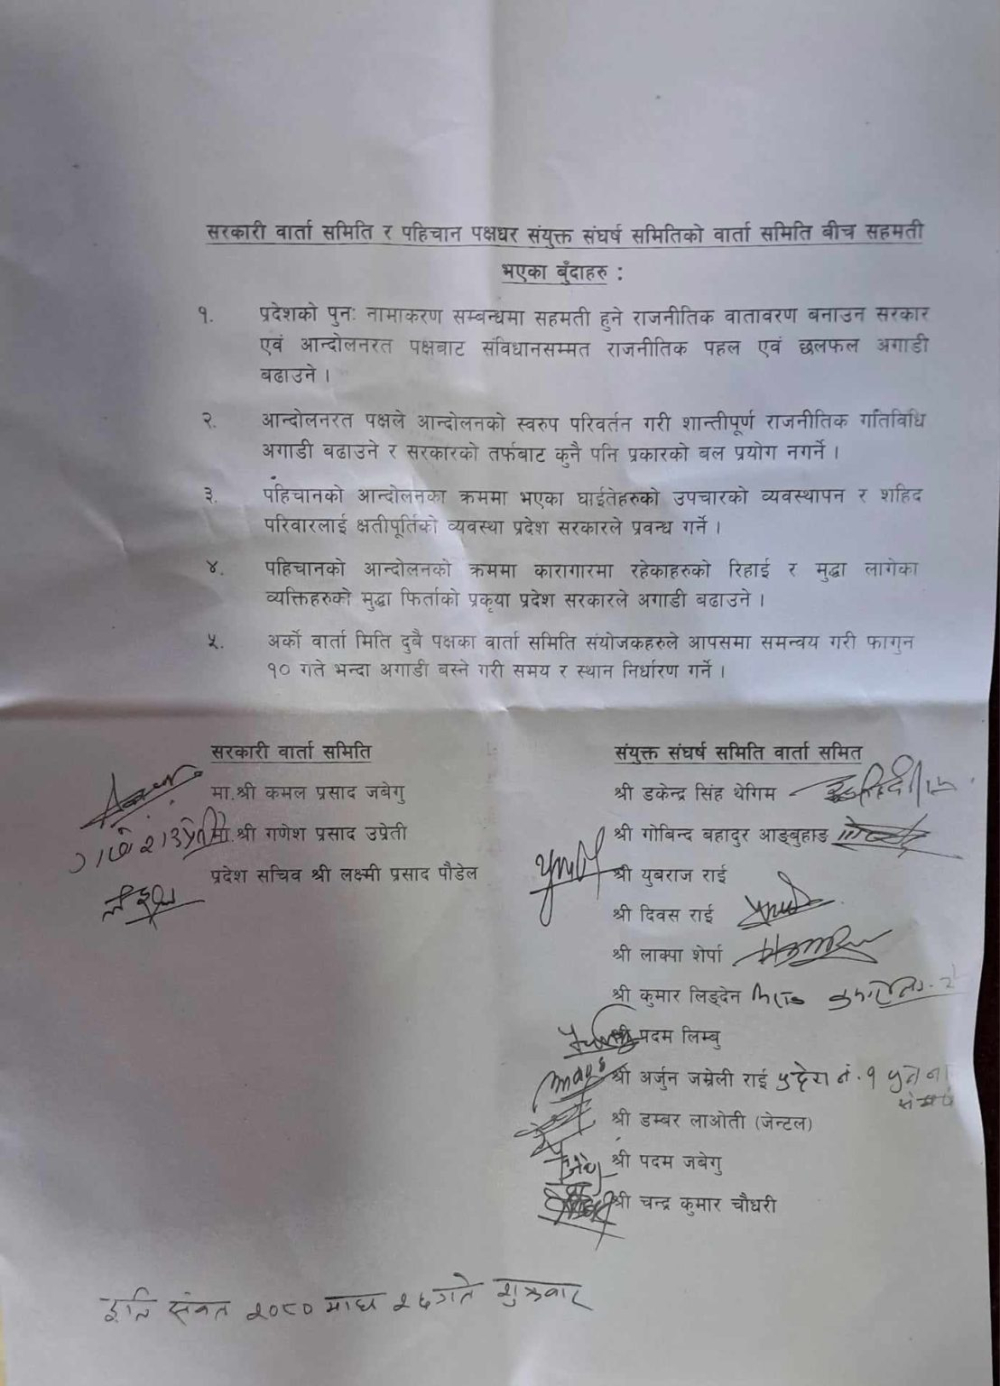 सरकारी वार्ता समिति र पहिचान पक्षधर संयुक्त संघर्ष समितिको वार्ता समिति बीच सहमती
भएका बुँदाहरु :
१. प्रदेशको पुनः नामाकरण सम्बन्धमा सहमती हुने राजनीतिक वातावरण बनाउन सरकार
एवं आन्दोलनरत पक्षबाट संविधानसम्मत राजनीतिक पहल एवं छलफल अगाडी
बढाउने ।
२. आन्दोलनरत पक्षले आन्दोलनको स्वरुप परिवर्तन गरी शान्तीपूर्ण राजनीतिक गतिविधि
अगाडी बढाउने र सरकारको तर्फबाट कुनै पनि प्रकारको बल प्रयोग नगर्ने ।
३. पहिचानको आन्दोलनका क्रममा भएका घाईतेहरुको उपचारको व्यवस्थापन र शहिद
परिवारलाई क्षतीपूर्तिको व्यवस्था प्रदेश सरकारले प्रवन्ध गर्ने ।
४. पहिचानको आन्दोलनको क्रममा कारागारमा रहेकाहरुको रिहाई र मुद्धा लागेका
व्यक्तिहरुको मुद्धा फिर्ताको प्रकृया प्रदेश सरकारले अगाडी बढाउने ।
५. अर्को वार्ता मिति दुबै पक्षका वार्ता समिति संयोजकहरुले आपसमा समन्वय गरी फागुन
१० गते भन्दा अगाडी बस्ने गरी समय र स्थान निर्धारण गर्ने ।
सरकारी वार्ता समिति
मा.श्री कमल प्रसाद जबेगु
मा.श्री गणेश प्रसाद उप्रेती
प्रदेश सचिव श्री लक्ष्मी प्रसाद पौडेल
संयुक्त संघर्ष समिति वार्ता समित
श्री डकेन्द्र सिंह थेगिम
श्री गोबिन्द बहादुर आङ्बुहाङ
श्री युबराज राई
श्री दिवस राई
श्री लाक्पा शेर्पा
श्री कुमार लिङ्देन
श्री पदम लिम्बु
श्री अर्जुन जम्नेली राई प्रदेश नं. १
श्री डम्बर लाओती (जेन्टल)
श्री पदम जबेगु
श्री चन्द्र कुमार चौधरी
इति संवत २०८० माघ २६ गते शुक्रवार